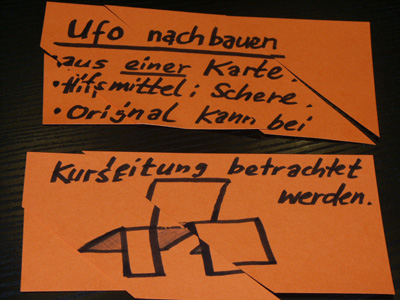 Ufo nachbauen
• aus einer Karte.
• Hilfsmittel: Schere.
• Original kann bei
Kursleitung betrachtet
werden.